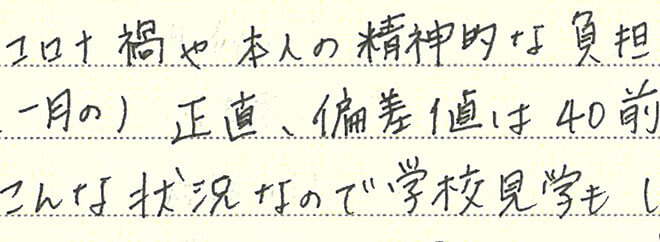 コロナ禍や本人の精神的な負担
一月の) 正直、偏差値は40前
こんな状況なので学校見学もし